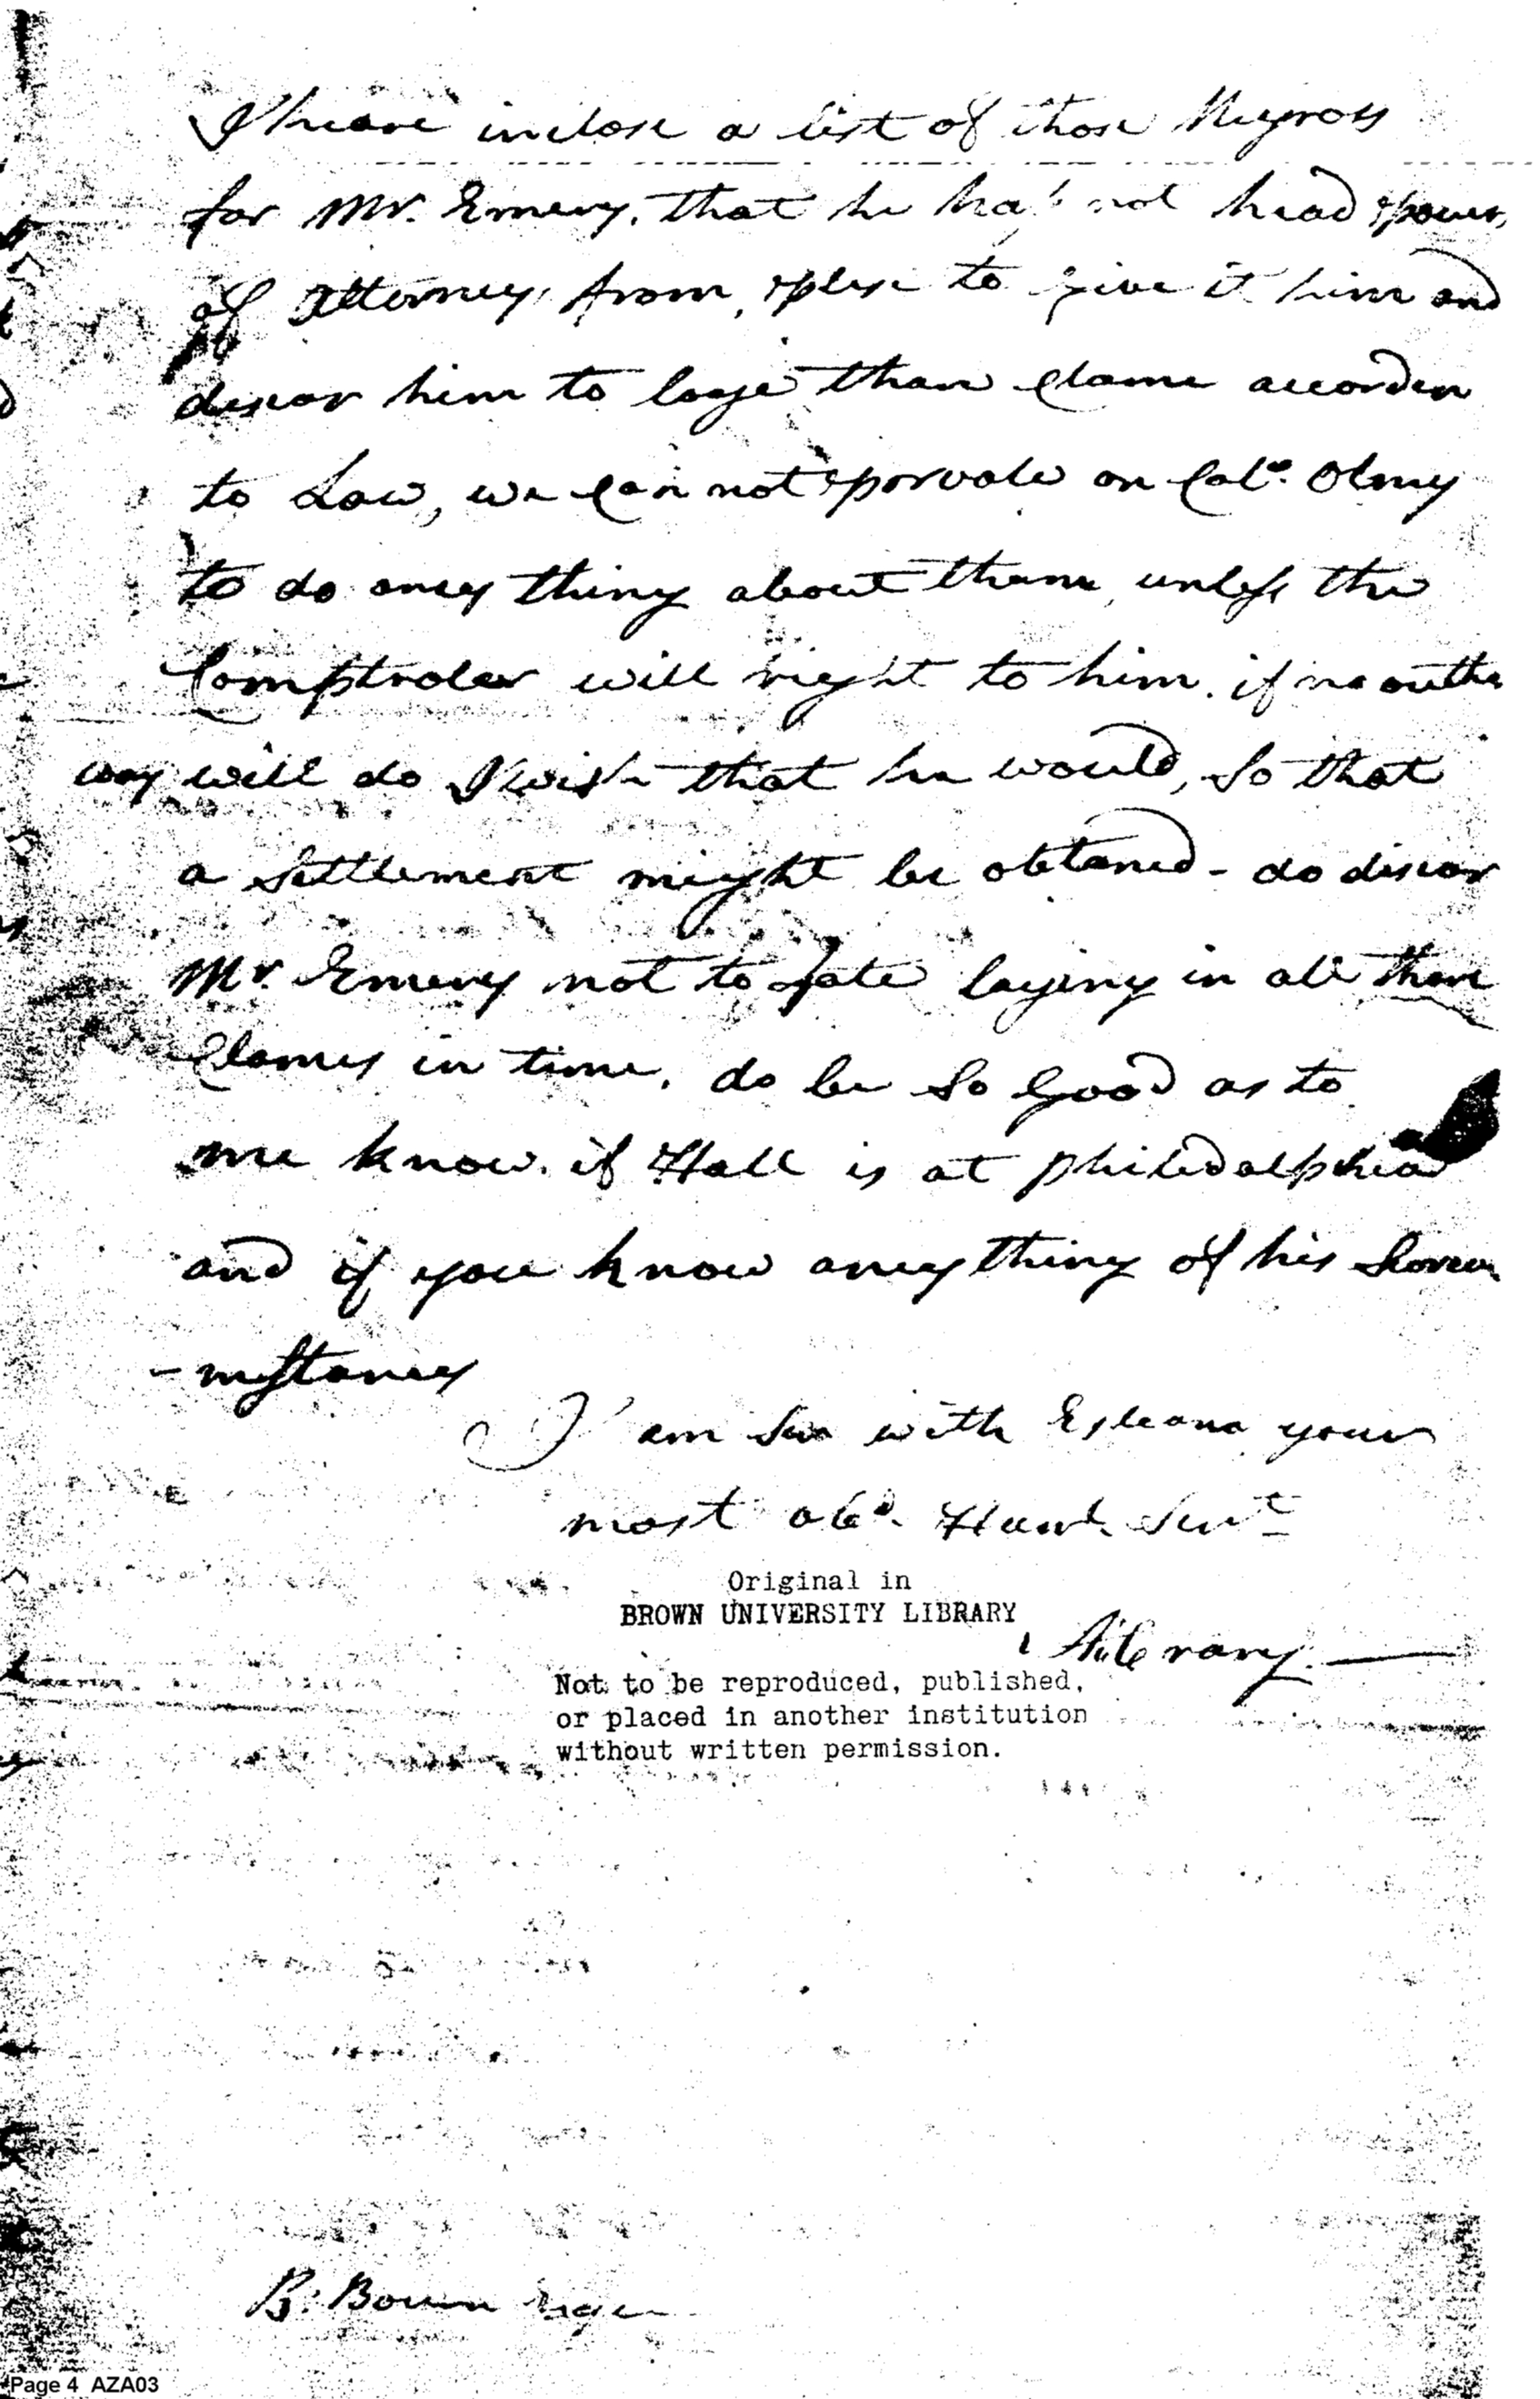 I heave inclose a list of those Negroes
for Mr. Emery, that he has not head power,
of Attorney from, plese to give it him and
descor him to loge than Clame accorden
to Law, we Can not porvale on Colo. Olney
to do aney thing about tham, unless the
Comptroler will right to him. if no outher
way will do I wish that he would, So that
a Settlement might be obtaned - do discor
Mr. Emery not to fale laying in all tham
Clames in time. do be So Good as to
me know. if Hall is at philedalphia
and if you know aney thing of his Sorcum
-mstances
I am Sir with Esteam your
most obd. Humb Servt
Original in
BROWN UNIVERSITY LIBRARY
Not to be reproduced, published,
or placed in another institution
without written permission.
B: Bourn
Page 4 AZA03